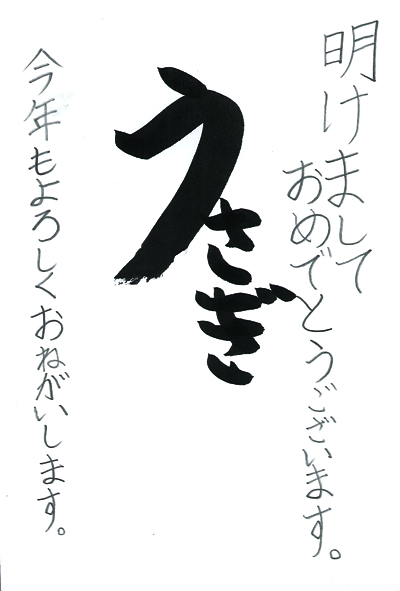 明けまして
おめでとうございます。
うさぎ
今年もよろしくおねがいします。